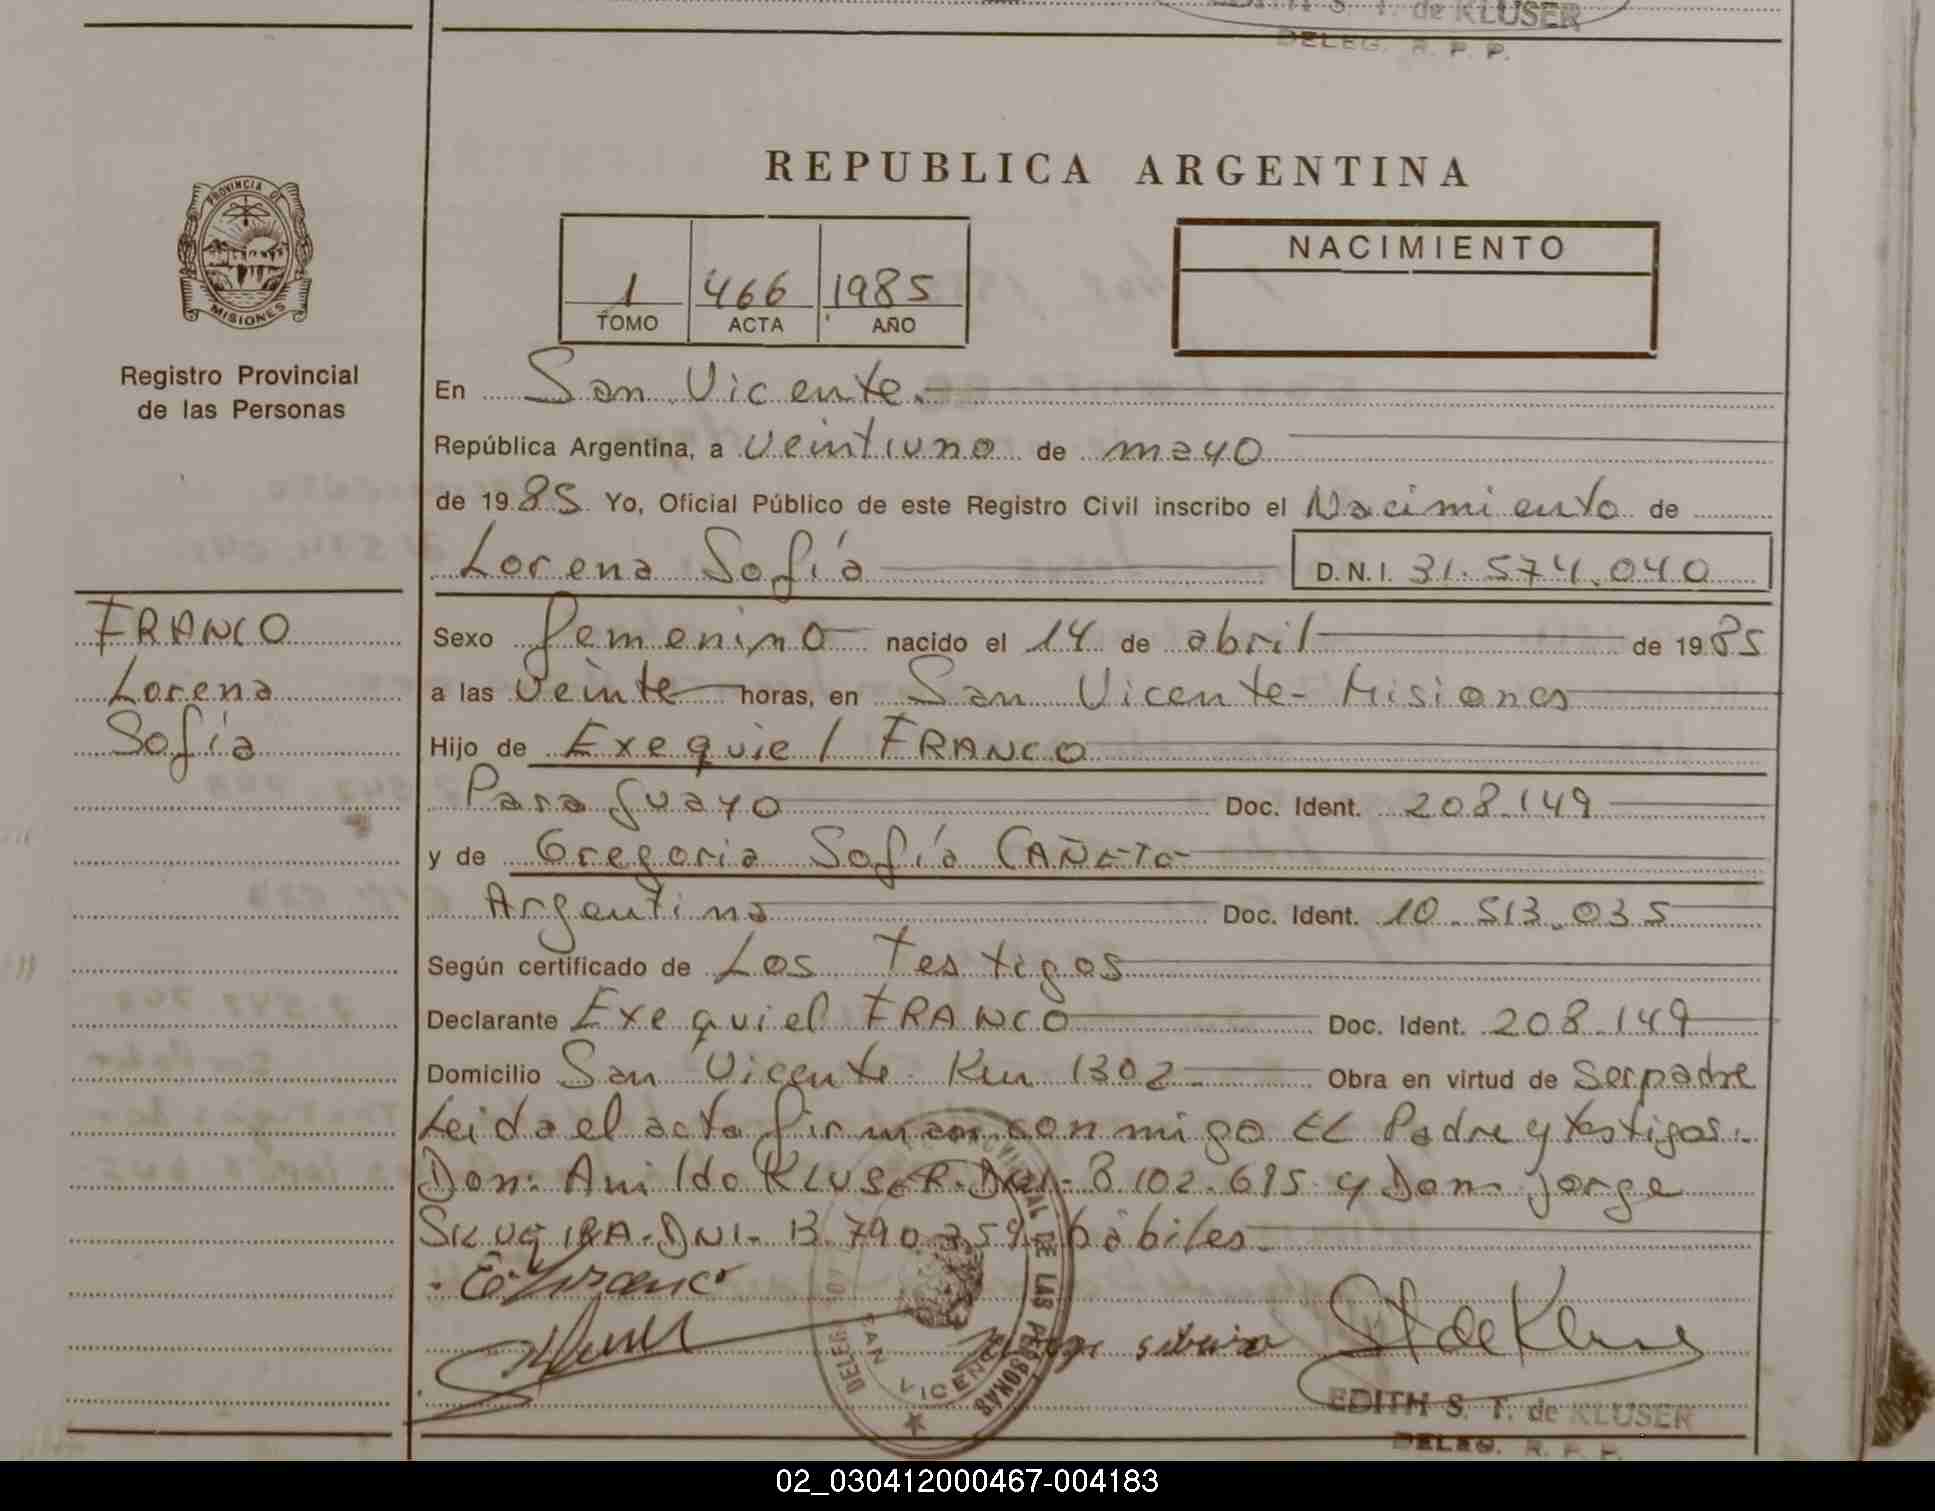 DITH S. T. de KLUSER
DELEG. R. P. P.
REPUBLICA ARGENTINA
PROVINCIA DE
MISIONES
Registro Provincial
de las Personas
1 466 1985
TOMO ACTA AÑO
NACIMIENTO
En San Vicente.
República Argentina, a veintiuno de mayo
de 1985 Yo, Oficial Público de este Registro Civil inscribo el Nacimiento de
Lorena Sofía D.N.I. 31.574.040
FRANCO
Lorena
Sofía
Sexo femenino nacido el 14 de abril de 1985
a las veinte horas, en San Vicente- Misiones
Hijo de Exequiel FRANCO
Paraguayo Doc. Ident. 208.149
y de Gregoria Sofía CAÑETE
Argentina Doc. Ident. 10.513.035
Según certificado de Los Testigos
Declarante Exequiel FRANCO Doc. Ident. 208.149
Domicilio San Vicente Km 1302 Obra en virtud de Ser padre
Leida el acta firman conmigo EL Padre y testigos.
Don: Anildo KLUSER. DNI- 8.102.695 y Don Jorge
SILVEIRA. DNI- 13.790.359 hábiles.
E. Franco
Silveira
St de Kluser
DE LAS PERSONAS
SAN VICENTE
EDITH S. T. de KLUSER
DELEG. R. P. P.
02_030412000467-004183